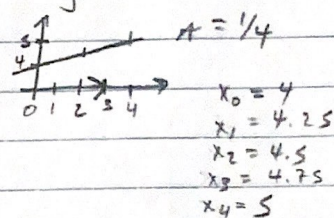 5
4
0 1 2 3 4
A = 1/4
x₀ = 4
x₁ = 4.25
x₂ = 4.5
x₃ = 4.75
x₄ = 5